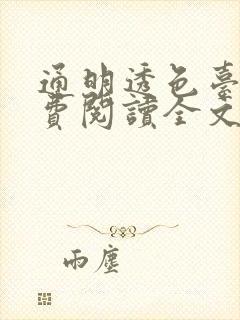 通明透色臺
費閱讀全文
雨塵